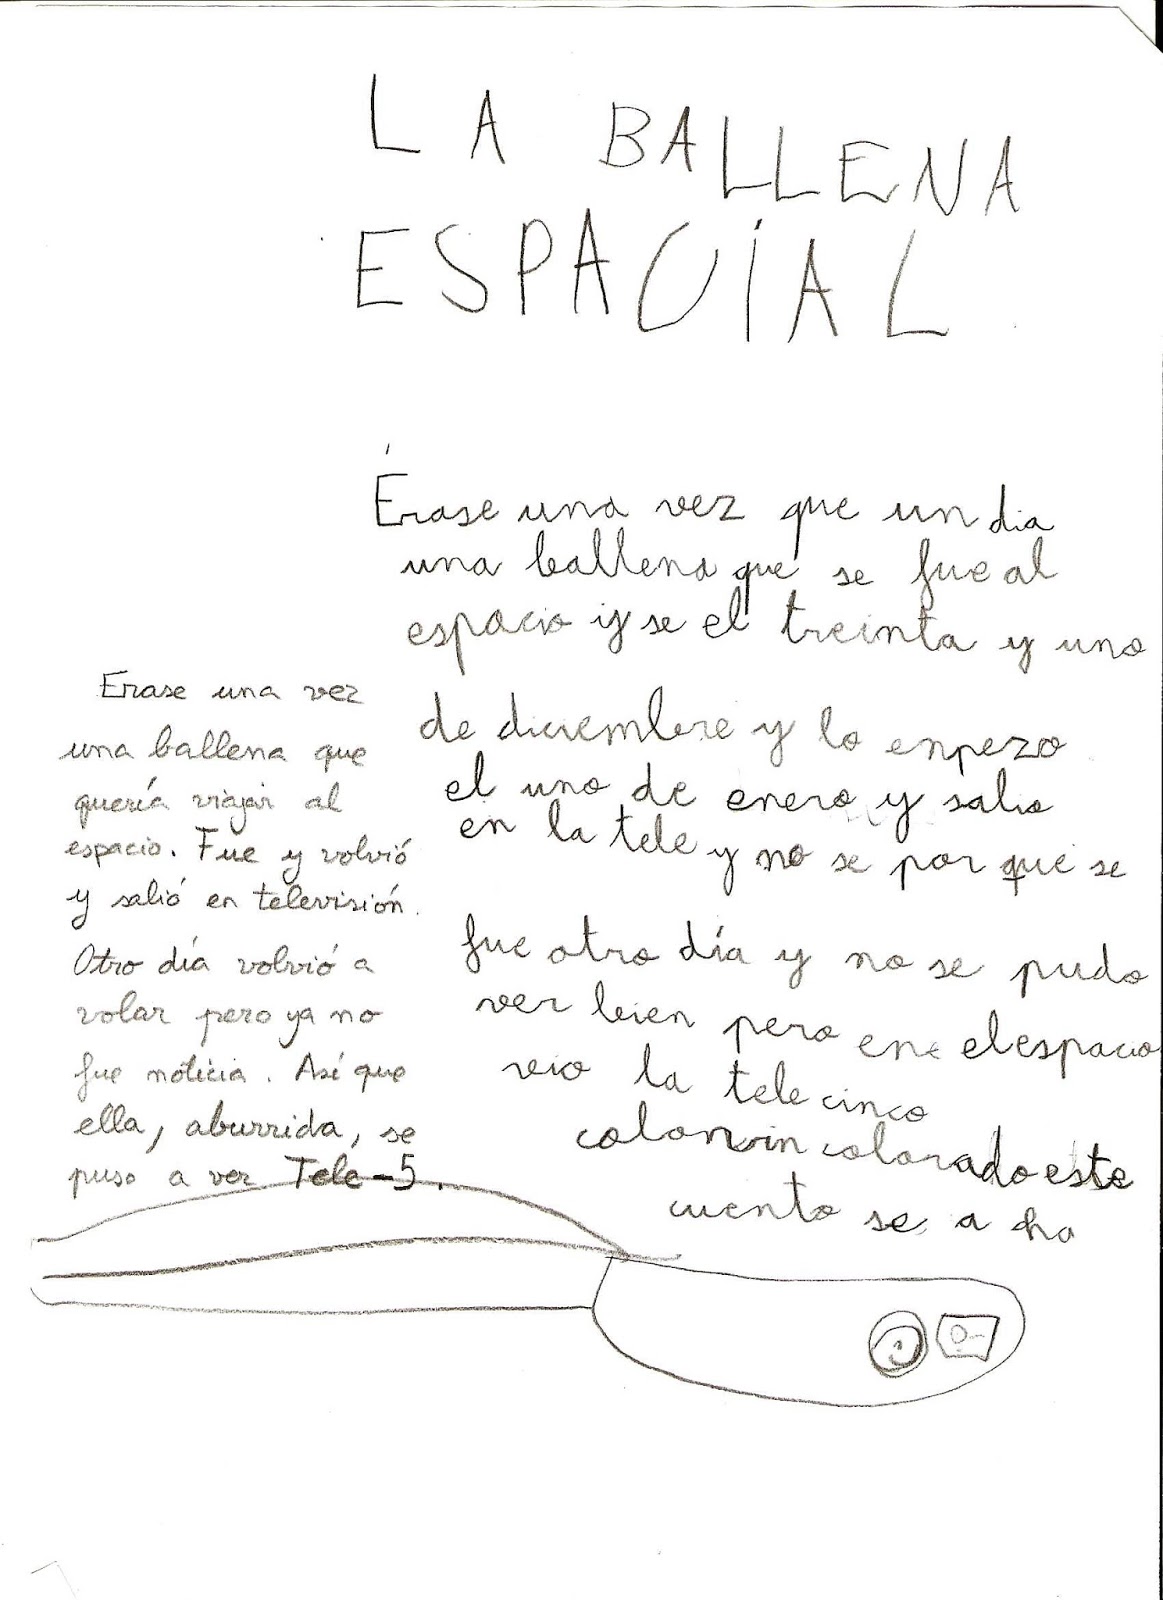 LA BALLENA
ESPACIAL
Érase una vez que un dia
una ballena que se fue al
espacio y se el treinta y uno
de diciembre y lo enpezo
el uno de enero y salio
en la tele y no se por que se
fue otro día y no se pudo
ver bien pero ene el espacio
veio la tele cinco
colonrin colorado este
cuento se a
Erase una vez
una ballena que
quería viajar al
espacio. Fue y volvió
y salió en televisión.
Otro día volvió a
volar pero ya no
fue noticia. Así que
ella, aburrida, se
puso a ver Tele-5.